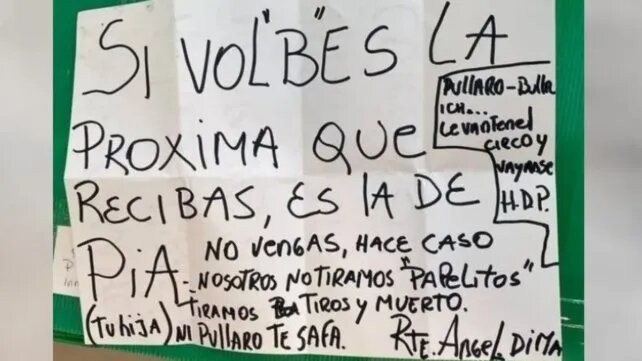 SI VOL"B"ES LA
PROXIMA QUE
RECIBAS, ES lA DE
PIA. NO VENGAS, HACE CASO
NOSOTROS NO TIRAMOS "PAPELITOS"
TIRAMOS TIROS Y MUERTO.
(Tu hija) NI PULLARO TE SAFA.
RTE. ANGEL DIMA
PULLARO - Bulla
ICH...
LEVANTEN el
CIRCO Y
VAYANSE
H.D.P.